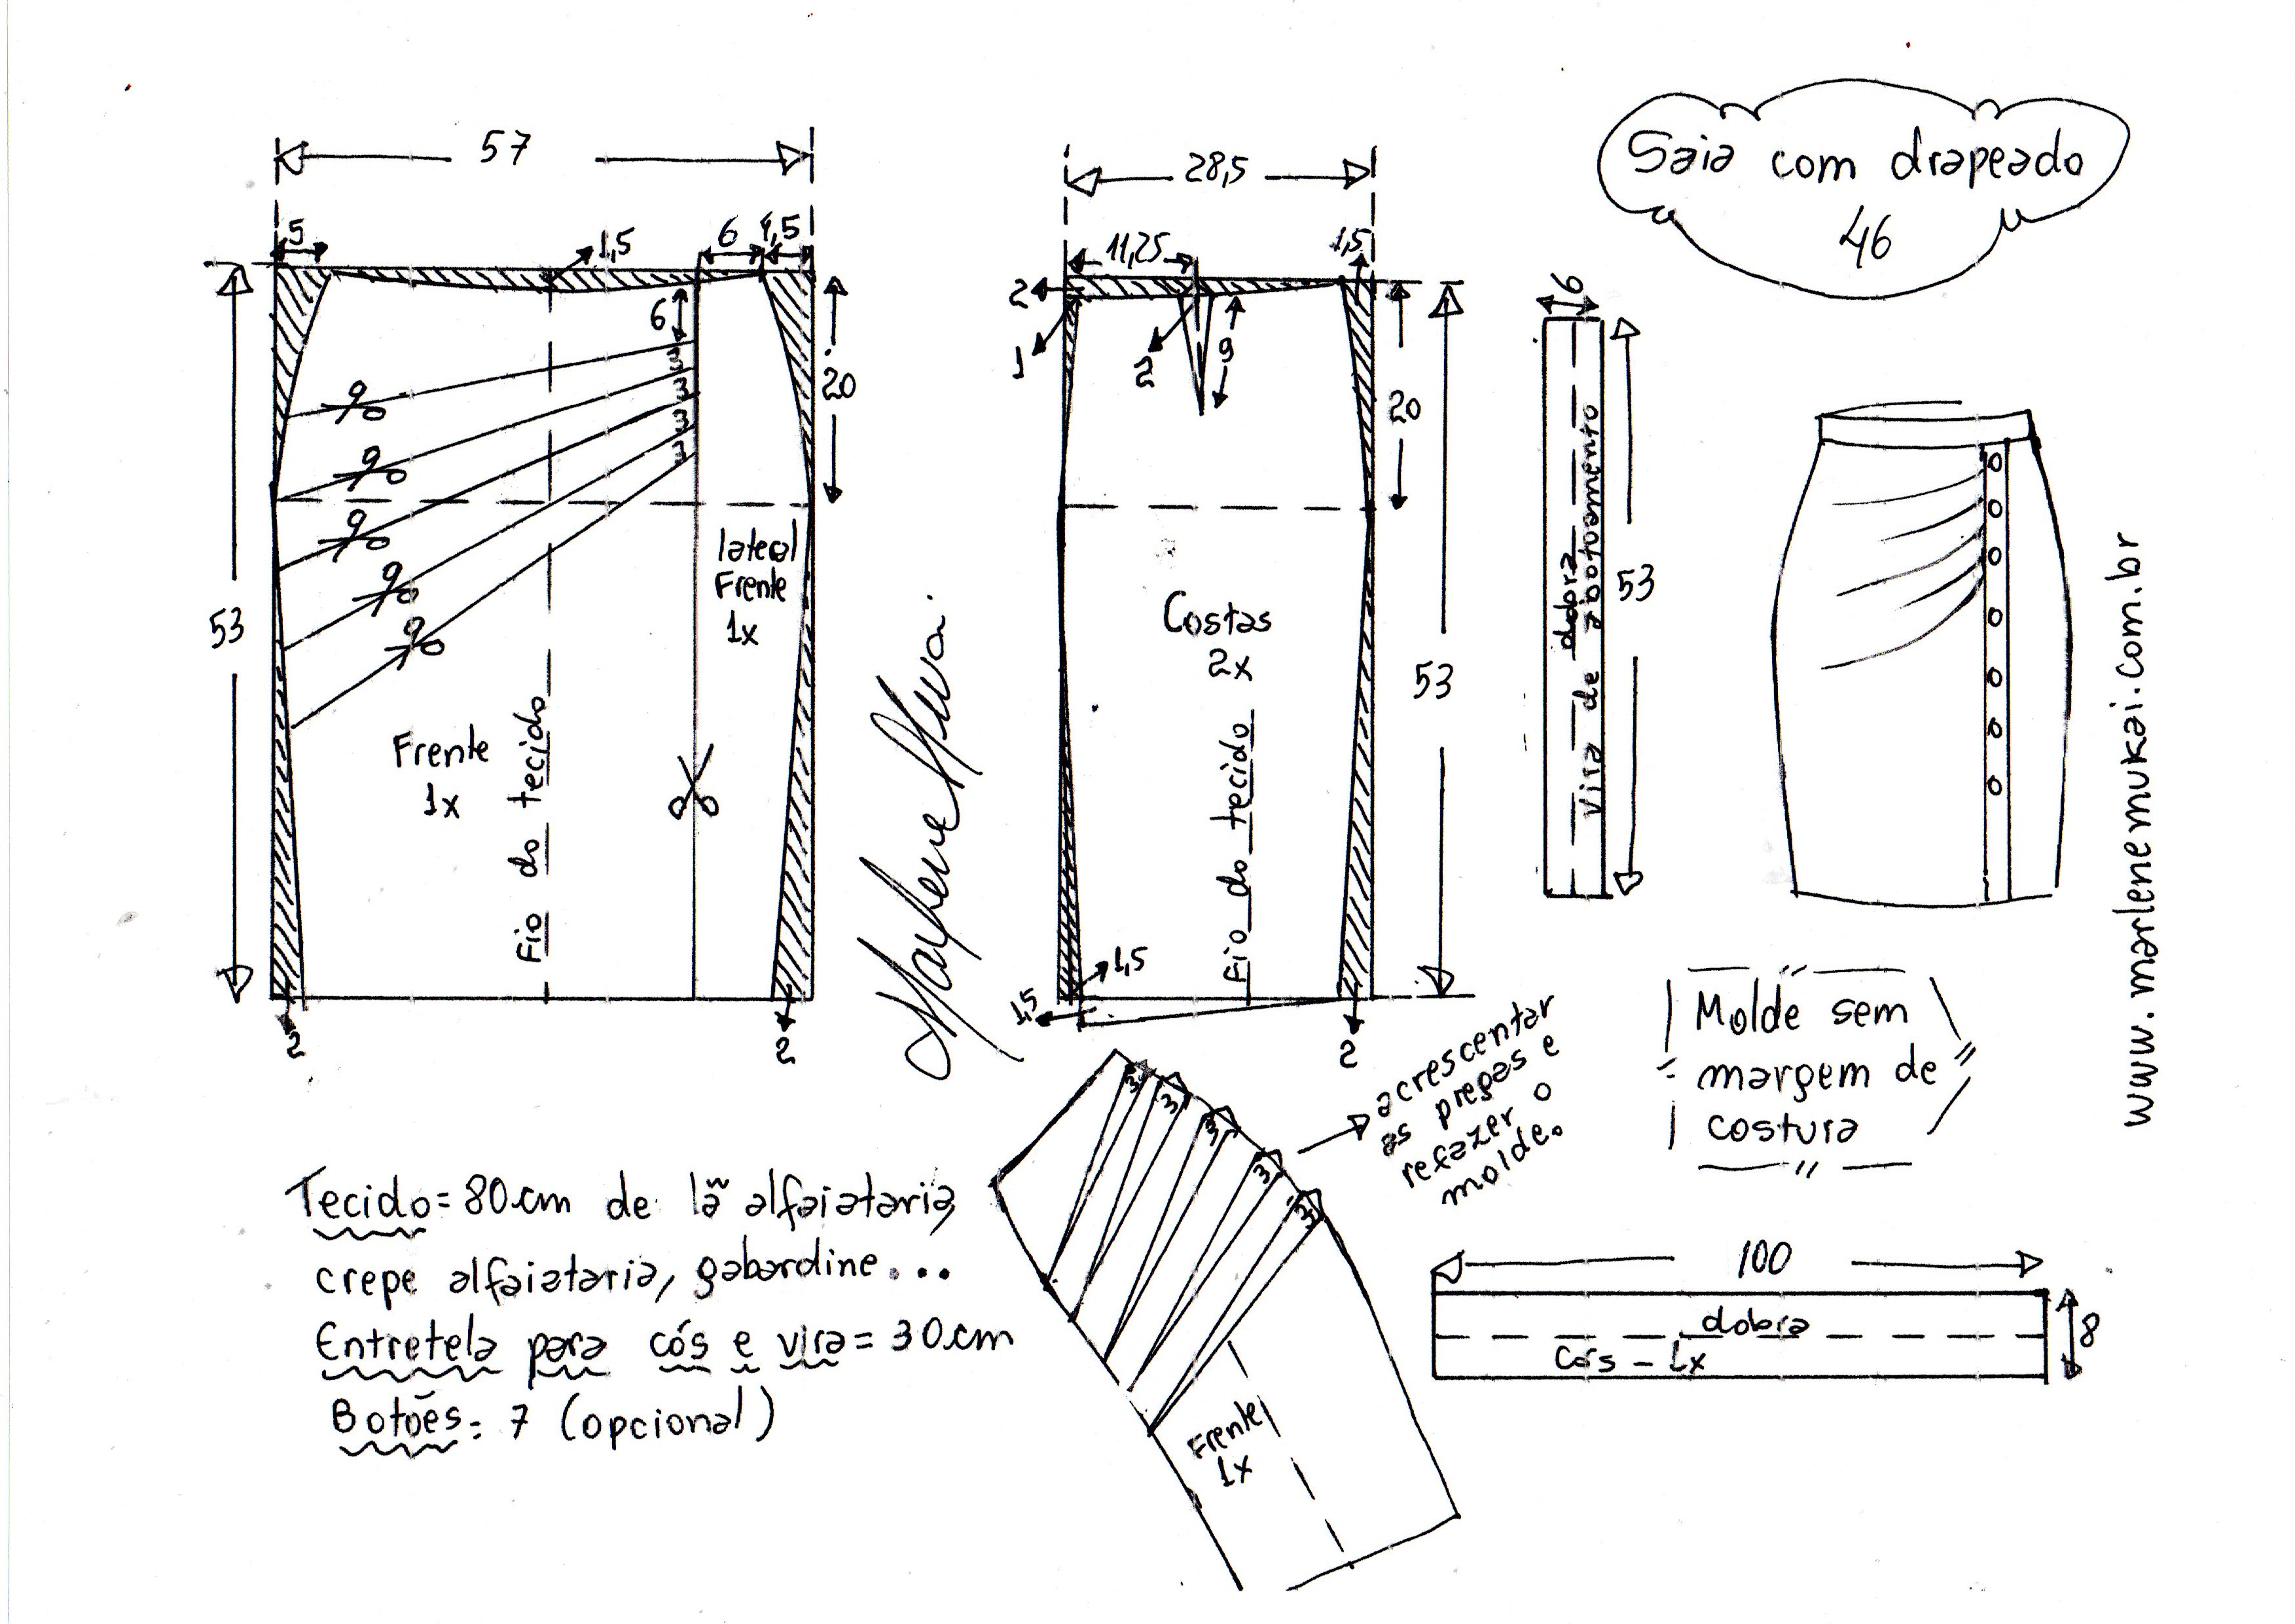 Saia com drapeado
46
57
5
1,5
6
4,5
6
3
3
3
3
20
53
lateral
Frente
1x
Frente
1x
Fio do tecido
2
2
28,5
11,25
1,5
2
1
2
9
20
53
Costas
2x
Fio do tecido
1,5
1,5
2
6
dobra
Vira de abotoamento
53
www.marlenemukai.com.br
Molde sem
margem de
costura
acrescentar
as pregas e
refazer o
molde.
3
3
3
3
3
Frente
1x
Tecido = 80 cm de lã alfaiataria,
crepe alfaiataria, gabardine...
Entretela para cós e vira = 30 cm
Botões: 7 (opcional)
100
dobra
Cós - 1x
8